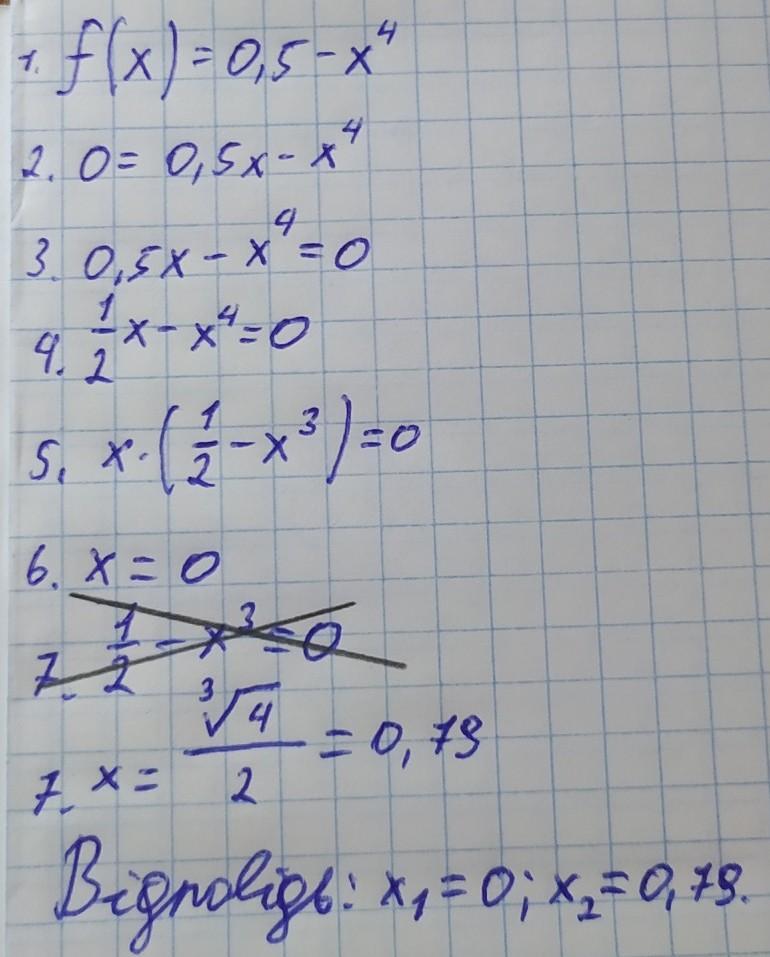 1. f(x) = 0,5 - x⁴
2. 0 = 0,5x - x⁴
3. 0,5x - x⁴ = 0
4. 1/2 x - x⁴ = 0
5. x · (1/2 - x³) = 0
6. x = 0
7. 1/2 - x³ = 0
7. x = ∛4/2 = 0,79
Відповідь: x₁ = 0; x₂ = 0,79.